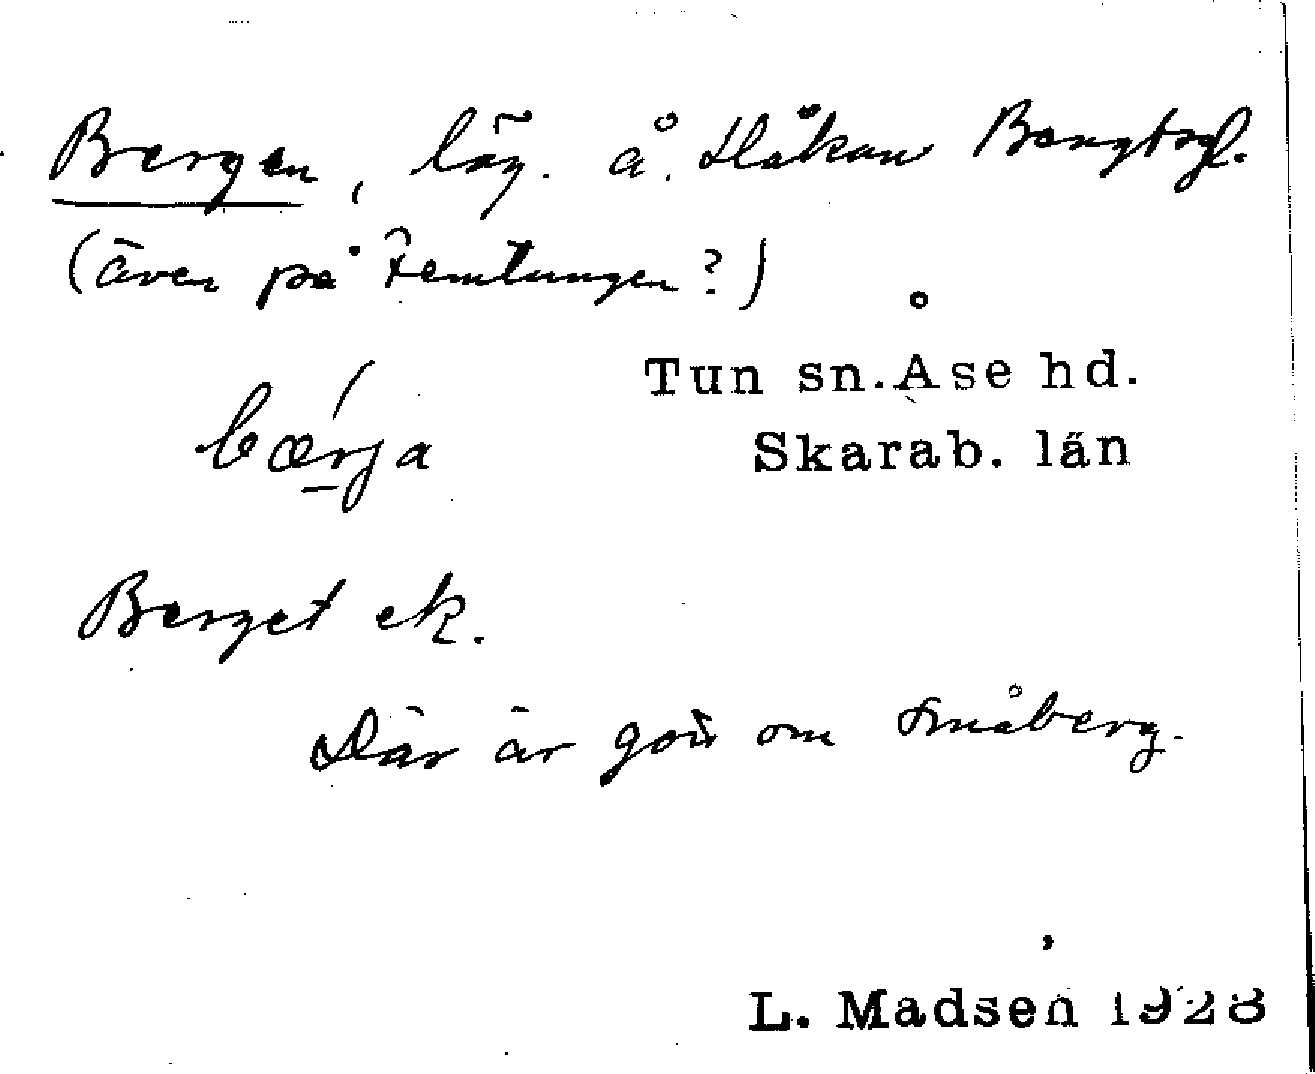 Bergen, läg. å. Håkan Bengtsg.
(även på Femtungen?)
Tun sn. Åse hd.
bærja
Skarab. län
Berget ek.
Där är gott om småberg.
L. Madsen 1928